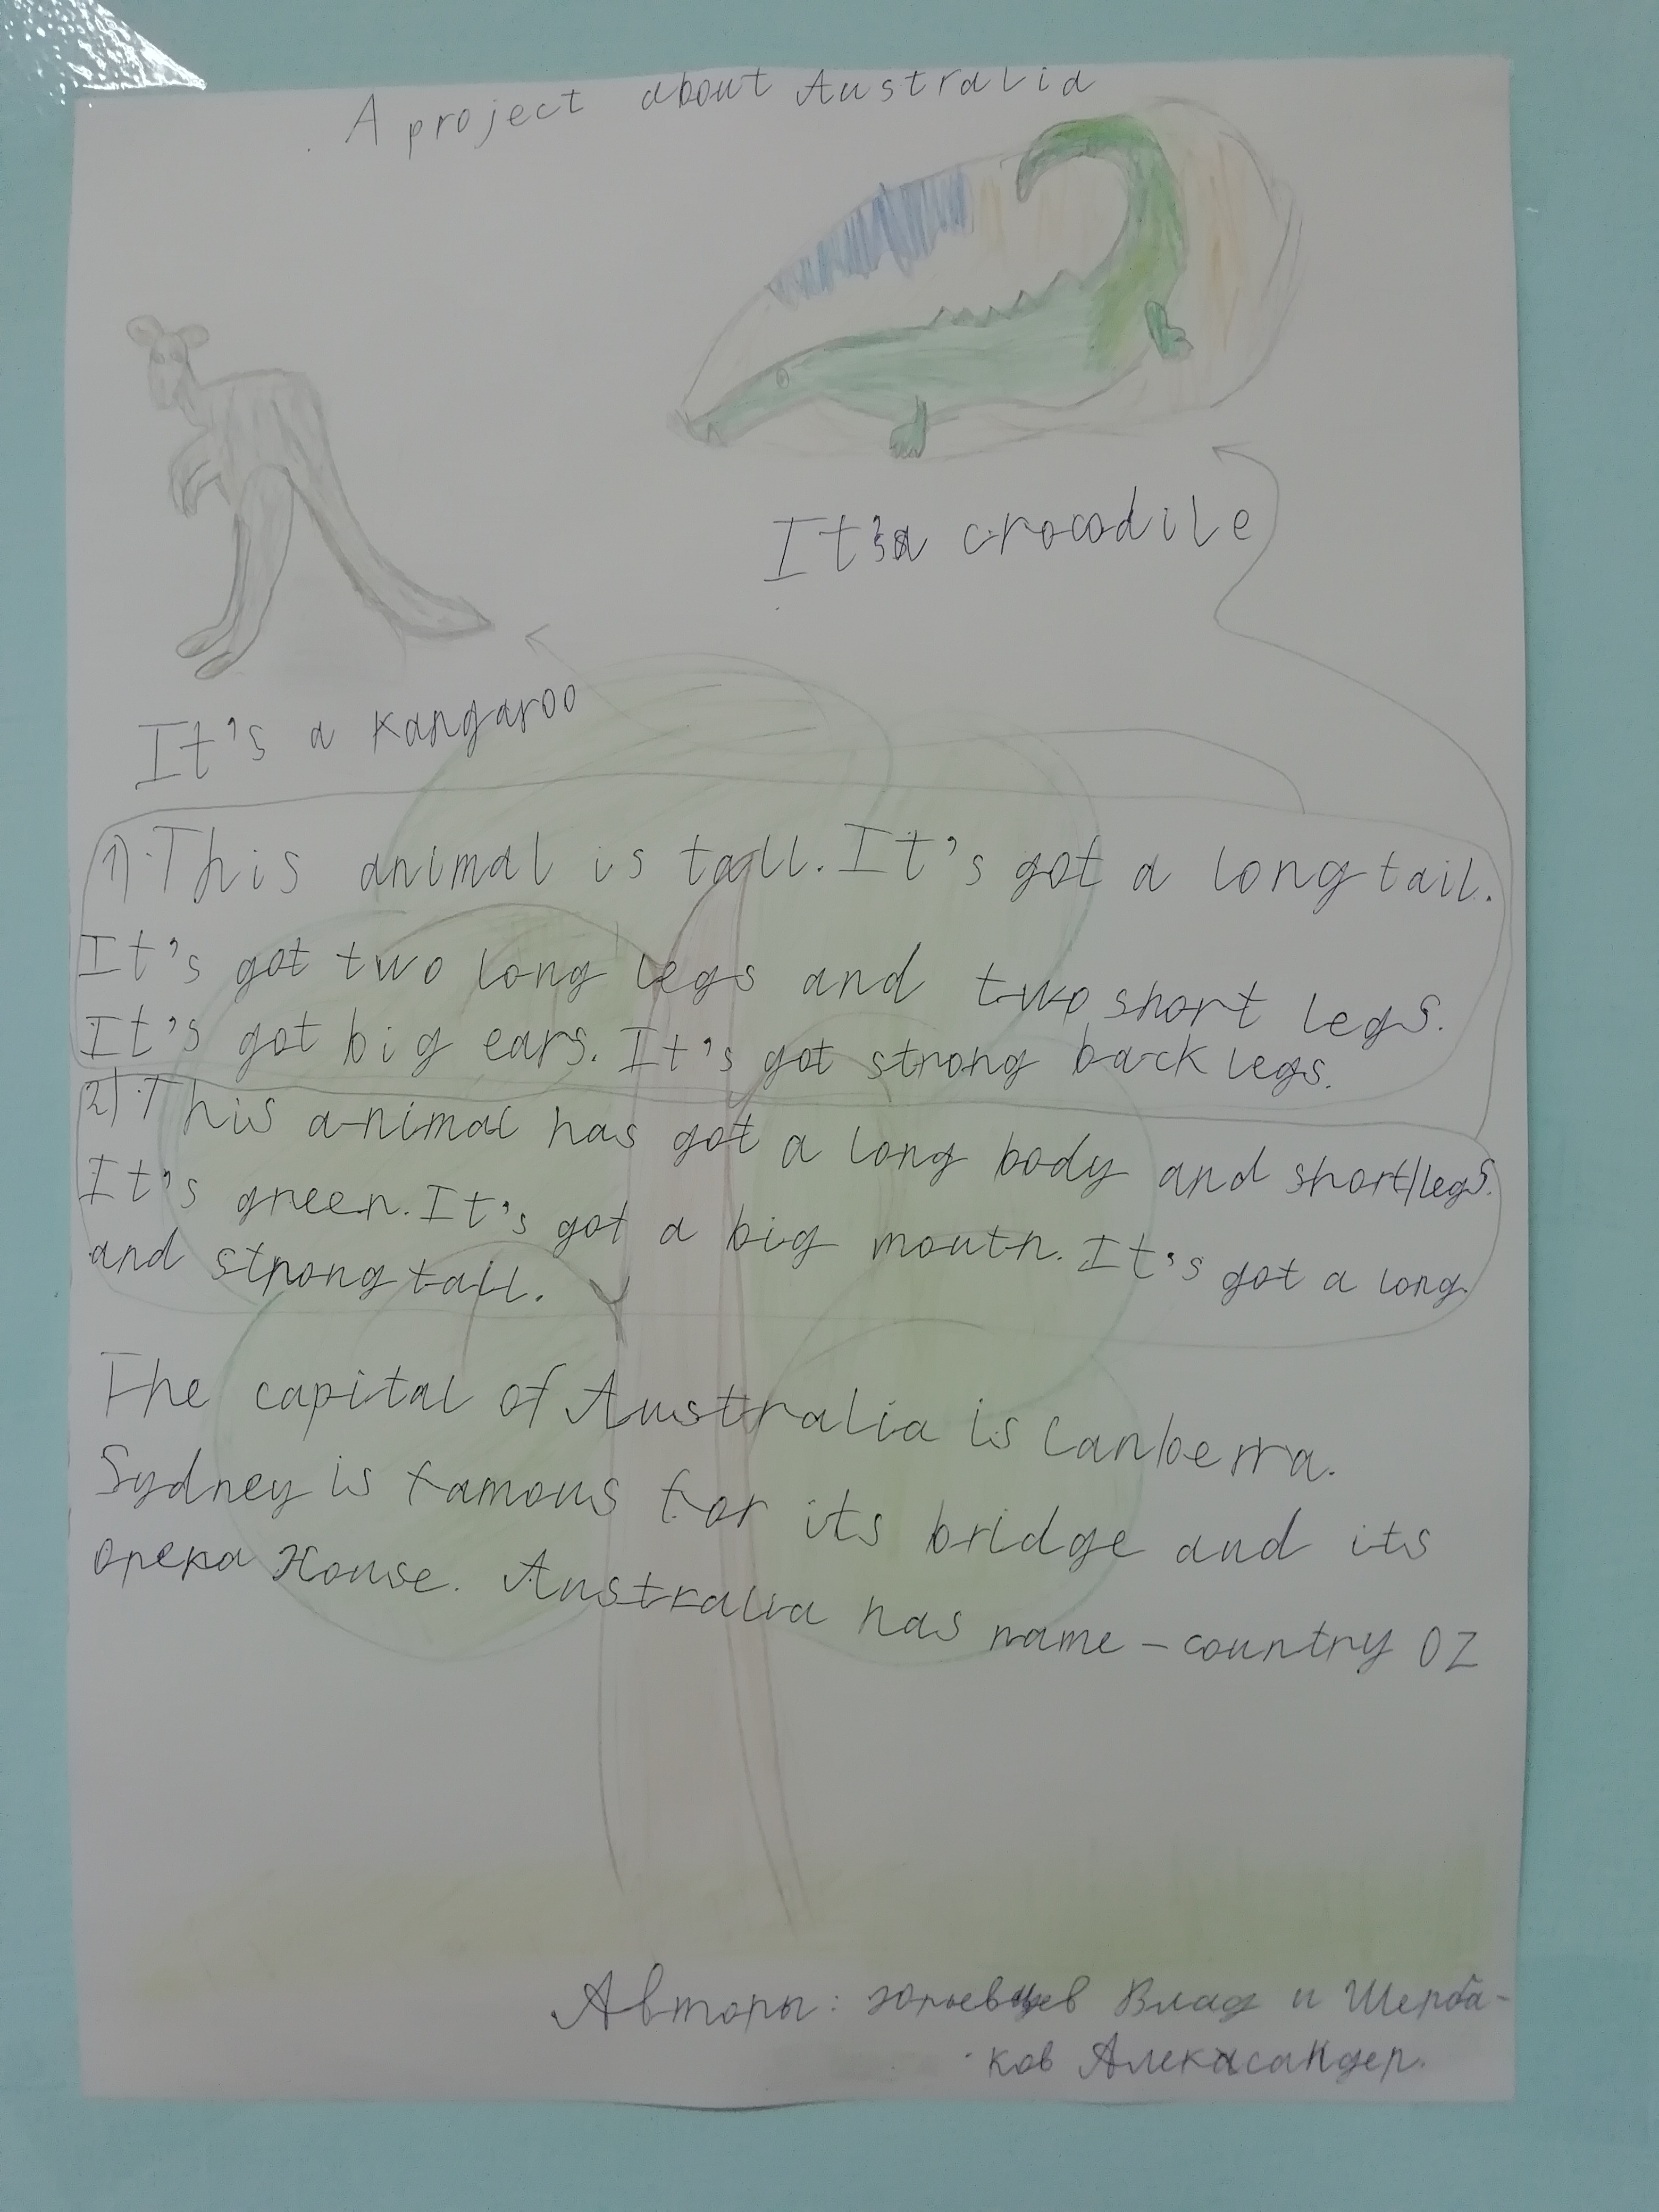 A project about Australia
It's a crocodile
It's a kangaroo
1) This animal is tall. It's got a long tail.
It's got two long legs and two short legs.
It's got big ears. It's got strong back legs.
2) This animal has got a long body and short legs.
It's green. It's got a big mouth. It's got a long
and strong tail.
The capital of Australia is Canberra.
Sydney is famous for its bridge and its
opera House. Australia has name - country OZ
Авторы: Влад и Щерба-
ков Алекасандер.